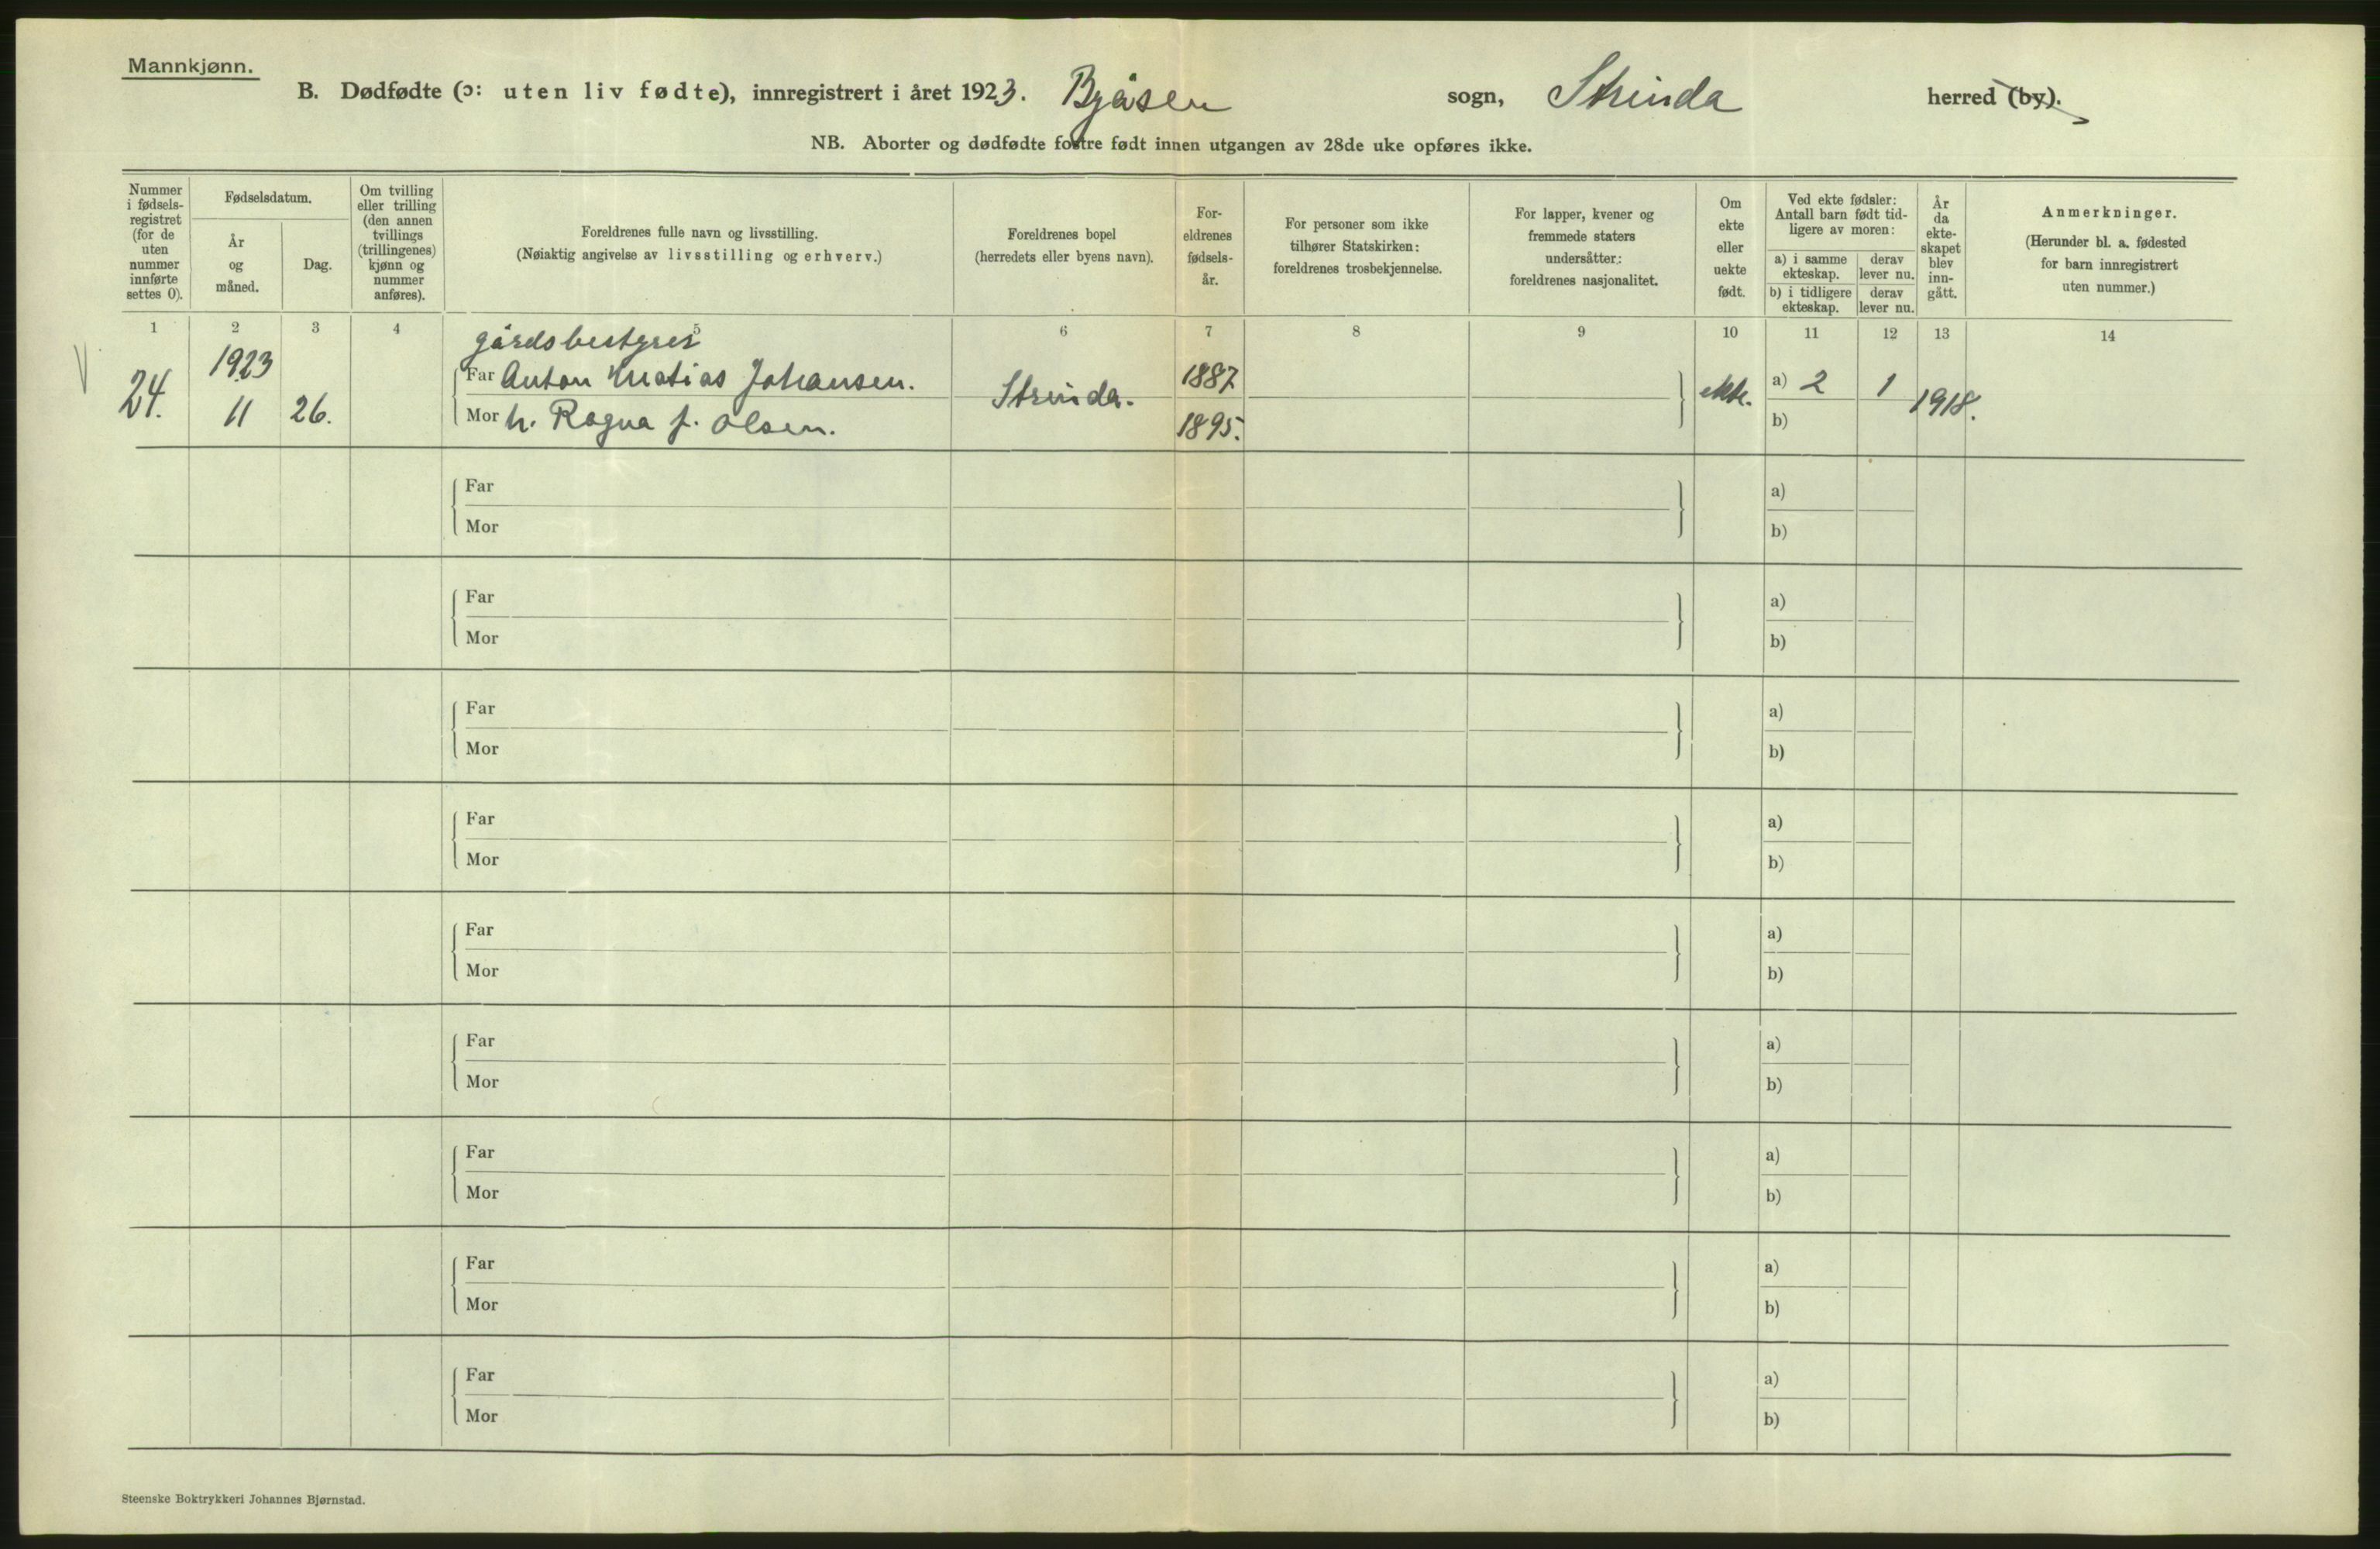 Mannkjønn.
B. Dødfødte (ɔ: uten liv fødte), innregistrert i året 1923. Byåsen sogn, Strinda herred (by).
NB. Aborter og dødfødte fostre født innen utgangen av 28de uke opføres ikke.
Nummer
i fødsels-
registret
(for de
uten
nummer
innførte
settes 0).
Fødselsdatum.
År
og
måned.
Dag.
Om tvilling
eller trilling
(den annen
tvillings
(trillingenes)
kjønn og
nummer
anføres).
Foreldrenes fulle navn og livsstilling.
(Nøiaktig angivelse av livsstilling og erhverv.)
Foreldrenes bopel
(herredets eller byens navn).
For-
eldrenes
fødsels-
år.
For personer som ikke
tilhører Statskirken:
foreldrenes trosbekjennelse.
For lapper, kvener og
fremmede staters
undersåtter:
foreldrenes nasjonalitet.
Om
ekte
eller
uekte
født.
Ved ekte fødsler:
Antall barn født tid-
ligere av moren:
a) i samme
ekteskap.
derav
lever nu.
b) i tidligere
ekteskap.
derav
lever nu.
År
da
ekte-
skapet
blev
inn-
gått.
Anmerkninger.
(Herunder bl. a. fødested
for barn innregistrert
uten nummer.)
1 2 3 4 5 6 7 8 9 10 11 12 13 14
gårdsbestyrer
24. 1923 Far Anton Matias Johansen. Strinda. 1887 ekte. a) 2 1 1918.
11 26. Mor h. Ragna f. Olsen. 1895. b)
Far a)
Mor b)
Far a)
Mor b)
Far a)
Mor b)
Far a)
Mor b)
Far a)
Mor b)
Far a)
Mor b)
Far a)
Mor b)
Far a)
Mor b)
Far a)
Mor b)
Steenske Boktrykkeri Johannes Bjørnstad.